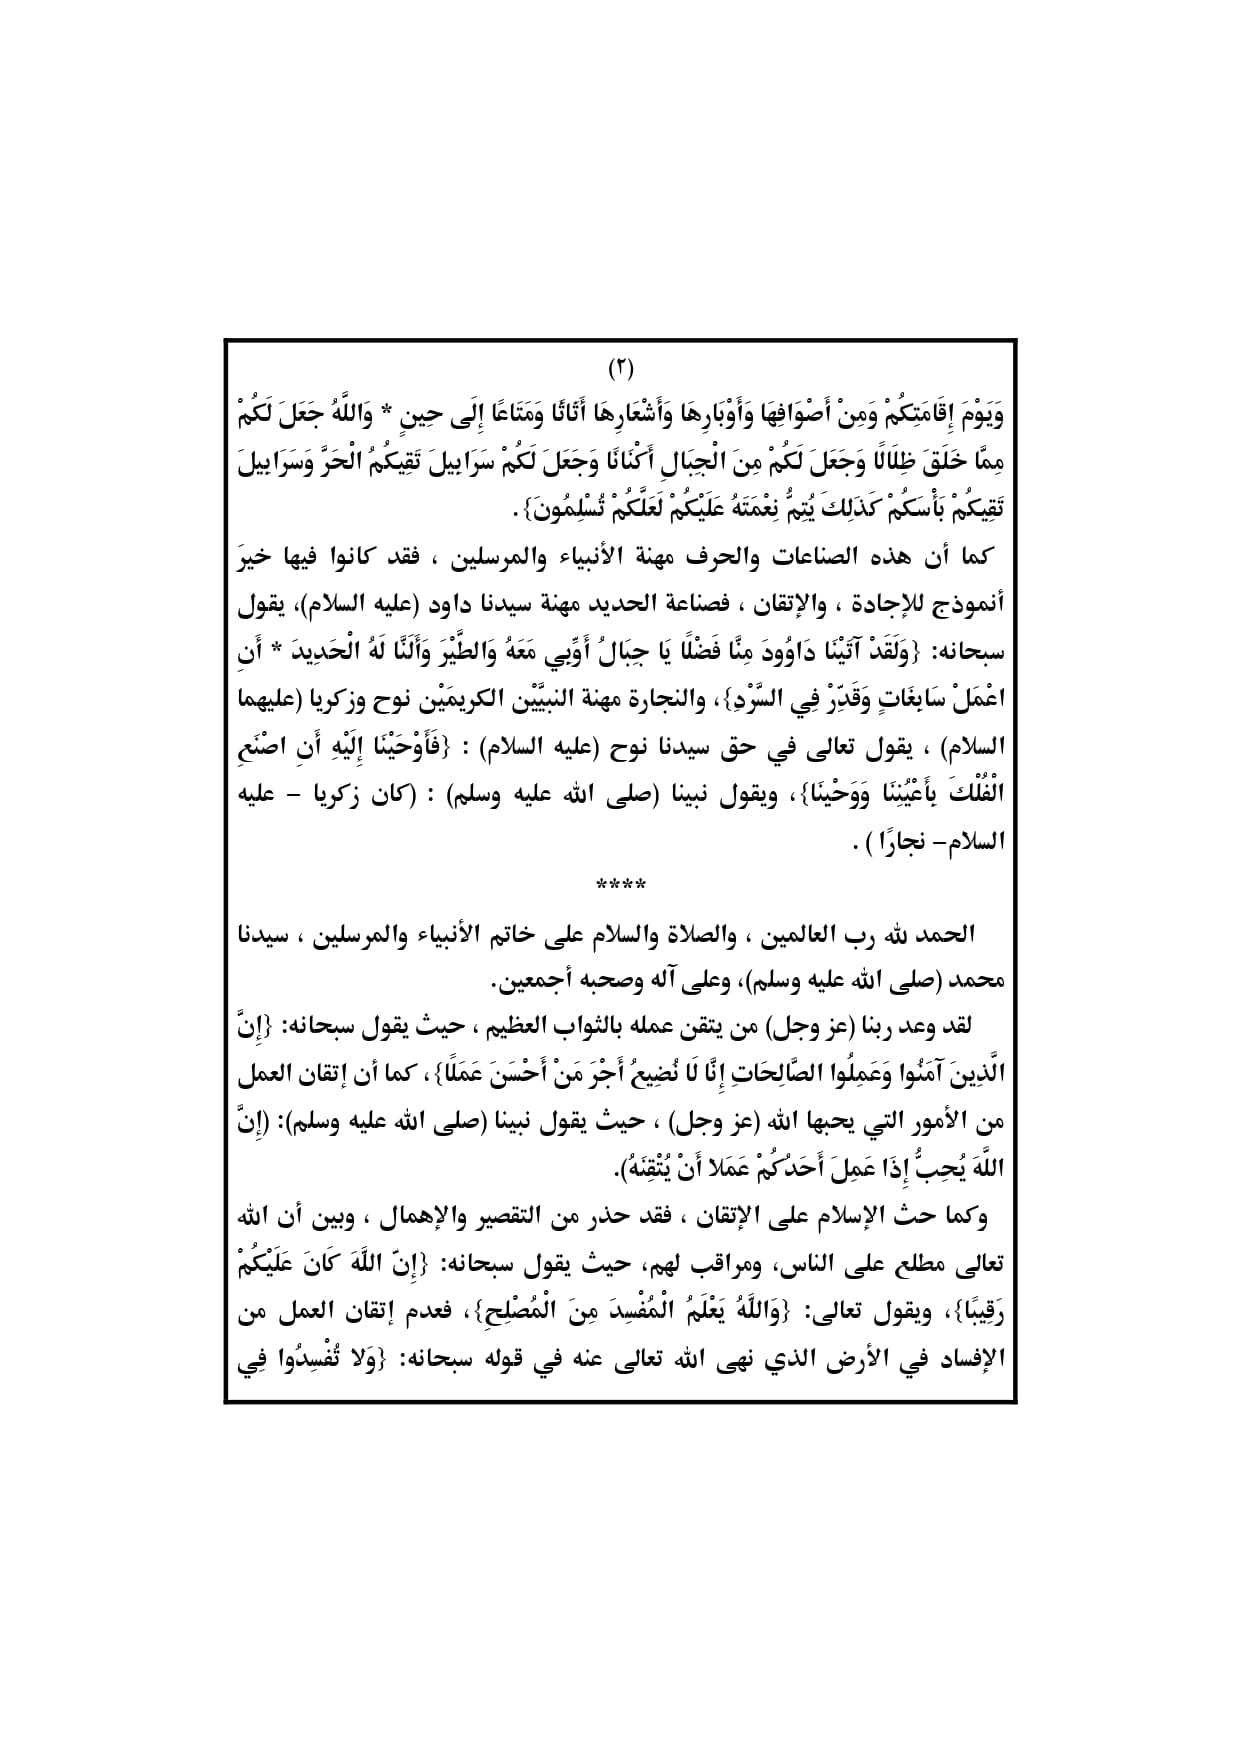 (٢)
وَيَوْمَ إِقَامَتِكُمْ وَمِنْ أَصْوَافِهَا وَأَوْبَارِهَا وَأَشْعَارِهَا أَثَاثًا وَمَتَاعًا إِلَى حِينٍ * وَاللَّهُ جَعَلَ لَكُمْ
مِمَّا خَلَقَ ظِلَالًا وَجَعَلَ لَكُمْ مِنَ الْجِبَالِ أَكْنَانًا وَجَعَلَ لَكُمْ سَرَابِيلَ تَقِيكُمُ الْحَرَّ وَسَرَابِيلَ
تَقِيكُمْ بَأْسَكُمْ كَذَلِكَ يُتِمُّ نِعْمَتَهُ عَلَيْكُمْ لَعَلَّكُمْ تُسْلِمُونَ}.
كما أن هذه الصناعات والحرف مهنة الأنبياء والمرسلين ، فقد كانوا فيها خيرَ
أنموذج للإجادة ، والإتقان ، فصناعة الحديد مهنة سيدنا داود (عليه السلام)، يقول
سبحانه: {وَلَقَدْ آتَيْنَا دَاوُودَ مِنَّا فَضْلًا يَا جِبَالُ أَوِّبِي مَعَهُ وَالطَّيْرَ وَأَلَنَّا لَهُ الْحَدِيدَ * أَنِ
اعْمَلْ سَابِغَاتٍ وَقَدِّرْ فِي السَّرْدِ}، والنجارة مهنة النبيَّيْن الكريمَيْن نوح وزكريا (عليهما
السلام) ، يقول تعالى في حق سيدنا نوح (عليه السلام) : {فَأَوْحَيْنَا إِلَيْهِ أَنِ اصْنَعِ
الْفُلْكَ بِأَعْيُنِنَا وَوَحْيِنَا}، ويقول نبينا (صلى الله عليه وسلم) : (كان زكريا – عليه
السلام– نجارًا ) .
****
الحمد لله رب العالمين ، والصلاة والسلام على خاتم الأنبياء والمرسلين ، سيدنا
محمد (صلى الله عليه وسلم)، وعلى آله وصحبه أجمعين.
لقد وعد ربنا (عز وجل) من يتقن عمله بالثواب العظيم ، حيث يقول سبحانه: {إِنَّ
الَّذِينَ آمَنُوا وَعَمِلُوا الصَّالِحَاتِ إِنَّا لَا نُضِيعُ أَجْرَ مَنْ أَحْسَنَ عَمَلًا}، كما أن إتقان العمل
من الأمور التي يحبها الله (عز وجل) ، حيث يقول نبينا (صلى الله عليه وسلم): (إِنَّ
اللَّهَ يُحِبُّ إِذَا عَمِلَ أَحَدُكُمْ عَمَلا أَنْ يُتْقِنَهُ).
وكما حث الإسلام على الإتقان ، فقد حذر من التقصير والإهمال ، وبين أن الله
تعالى مطلع على الناس، ومراقب لهم، حيث يقول سبحانه: {إِنّ اللَّهَ كَانَ عَلَيْكُمْ
رَقِيبًا}، ويقول تعالى: {وَاللَّهُ يَعْلَمُ الْمُفْسِدَ مِنَ الْمُصْلِحِ}، فعدم إتقان العمل من
الإفساد في الأرض الذي نهى الله تعالى عنه في قوله سبحانه: {وَلا تُفْسِدُوا فِي